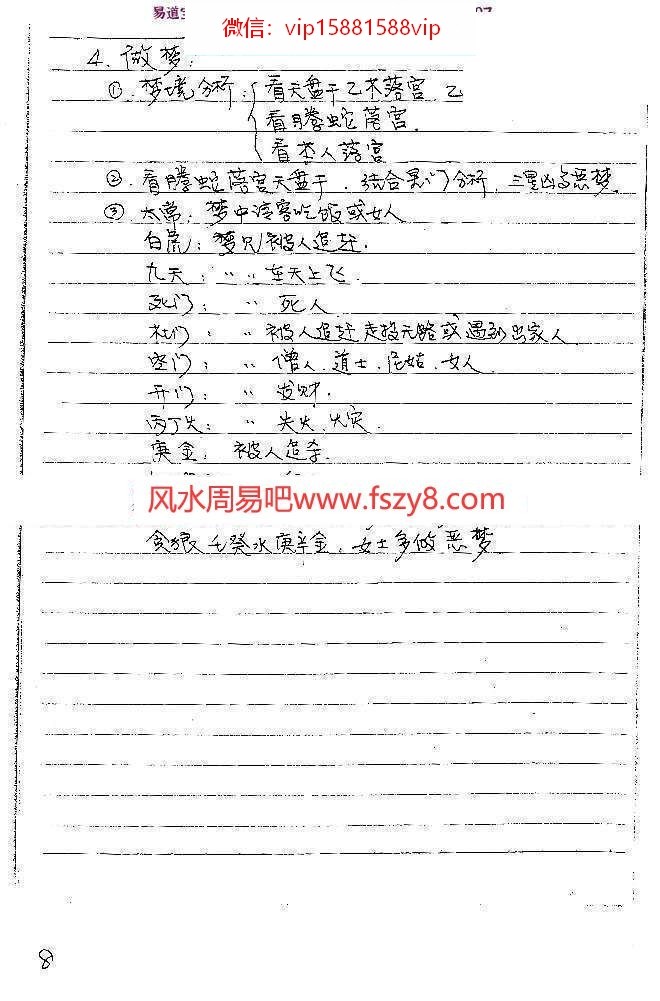 易道
微信：vip15881588vip
4. 做梦：
① 梦境分析：看天盘干乙木落宫 乙
看腾蛇落宫.
看本人落宫
② 看腾蛇落宫天盘干，结合星门分析，三星凶多恶梦.
③ 太常：梦中请客吃饭或女人
白虎：梦见被人追赶.
九天：〃〃在天上飞.
死门：〃 死人
杜门：〃 被人追赶走投无路或遇到出家人
空门：〃 僧人.道士.尼姑.女人.
开门：〃 发财.
丙丁火：〃 失火.火灾.
庚金：被人追杀.
风水周易吧www.fszy8.com
贪狼 壬癸水庚辛金，女士多做恶梦
8